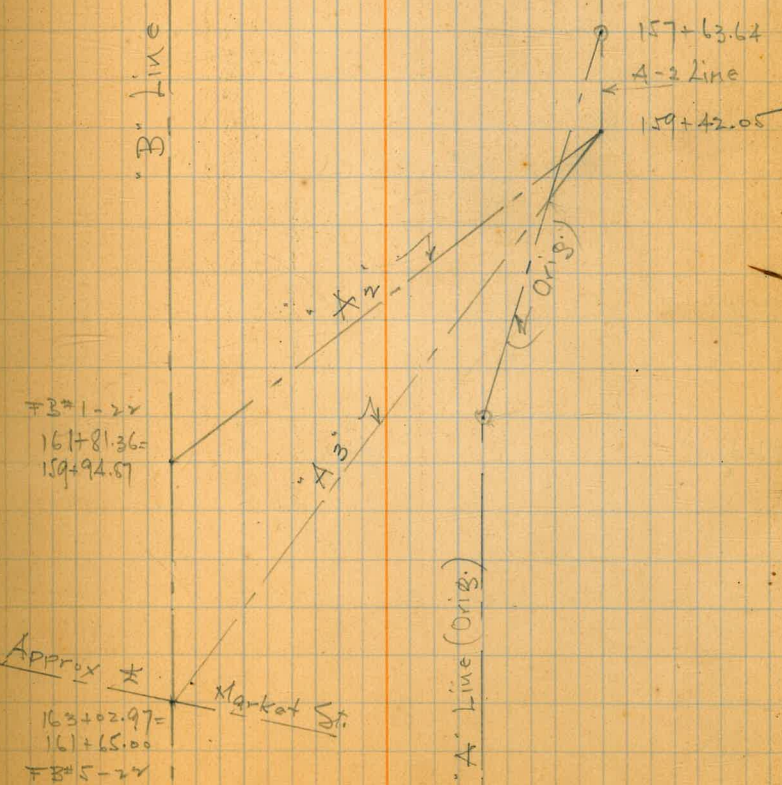 157+63.64
A-2 Line
159+42.05
"B" Line
"X2"
(Orig.)
"A3"
FB#1-22
161+81.36=
159+94.57
"A" Line (Orig.)
Approx ℄ Market St.
163+02.97=
161+65.00
FB#5-22